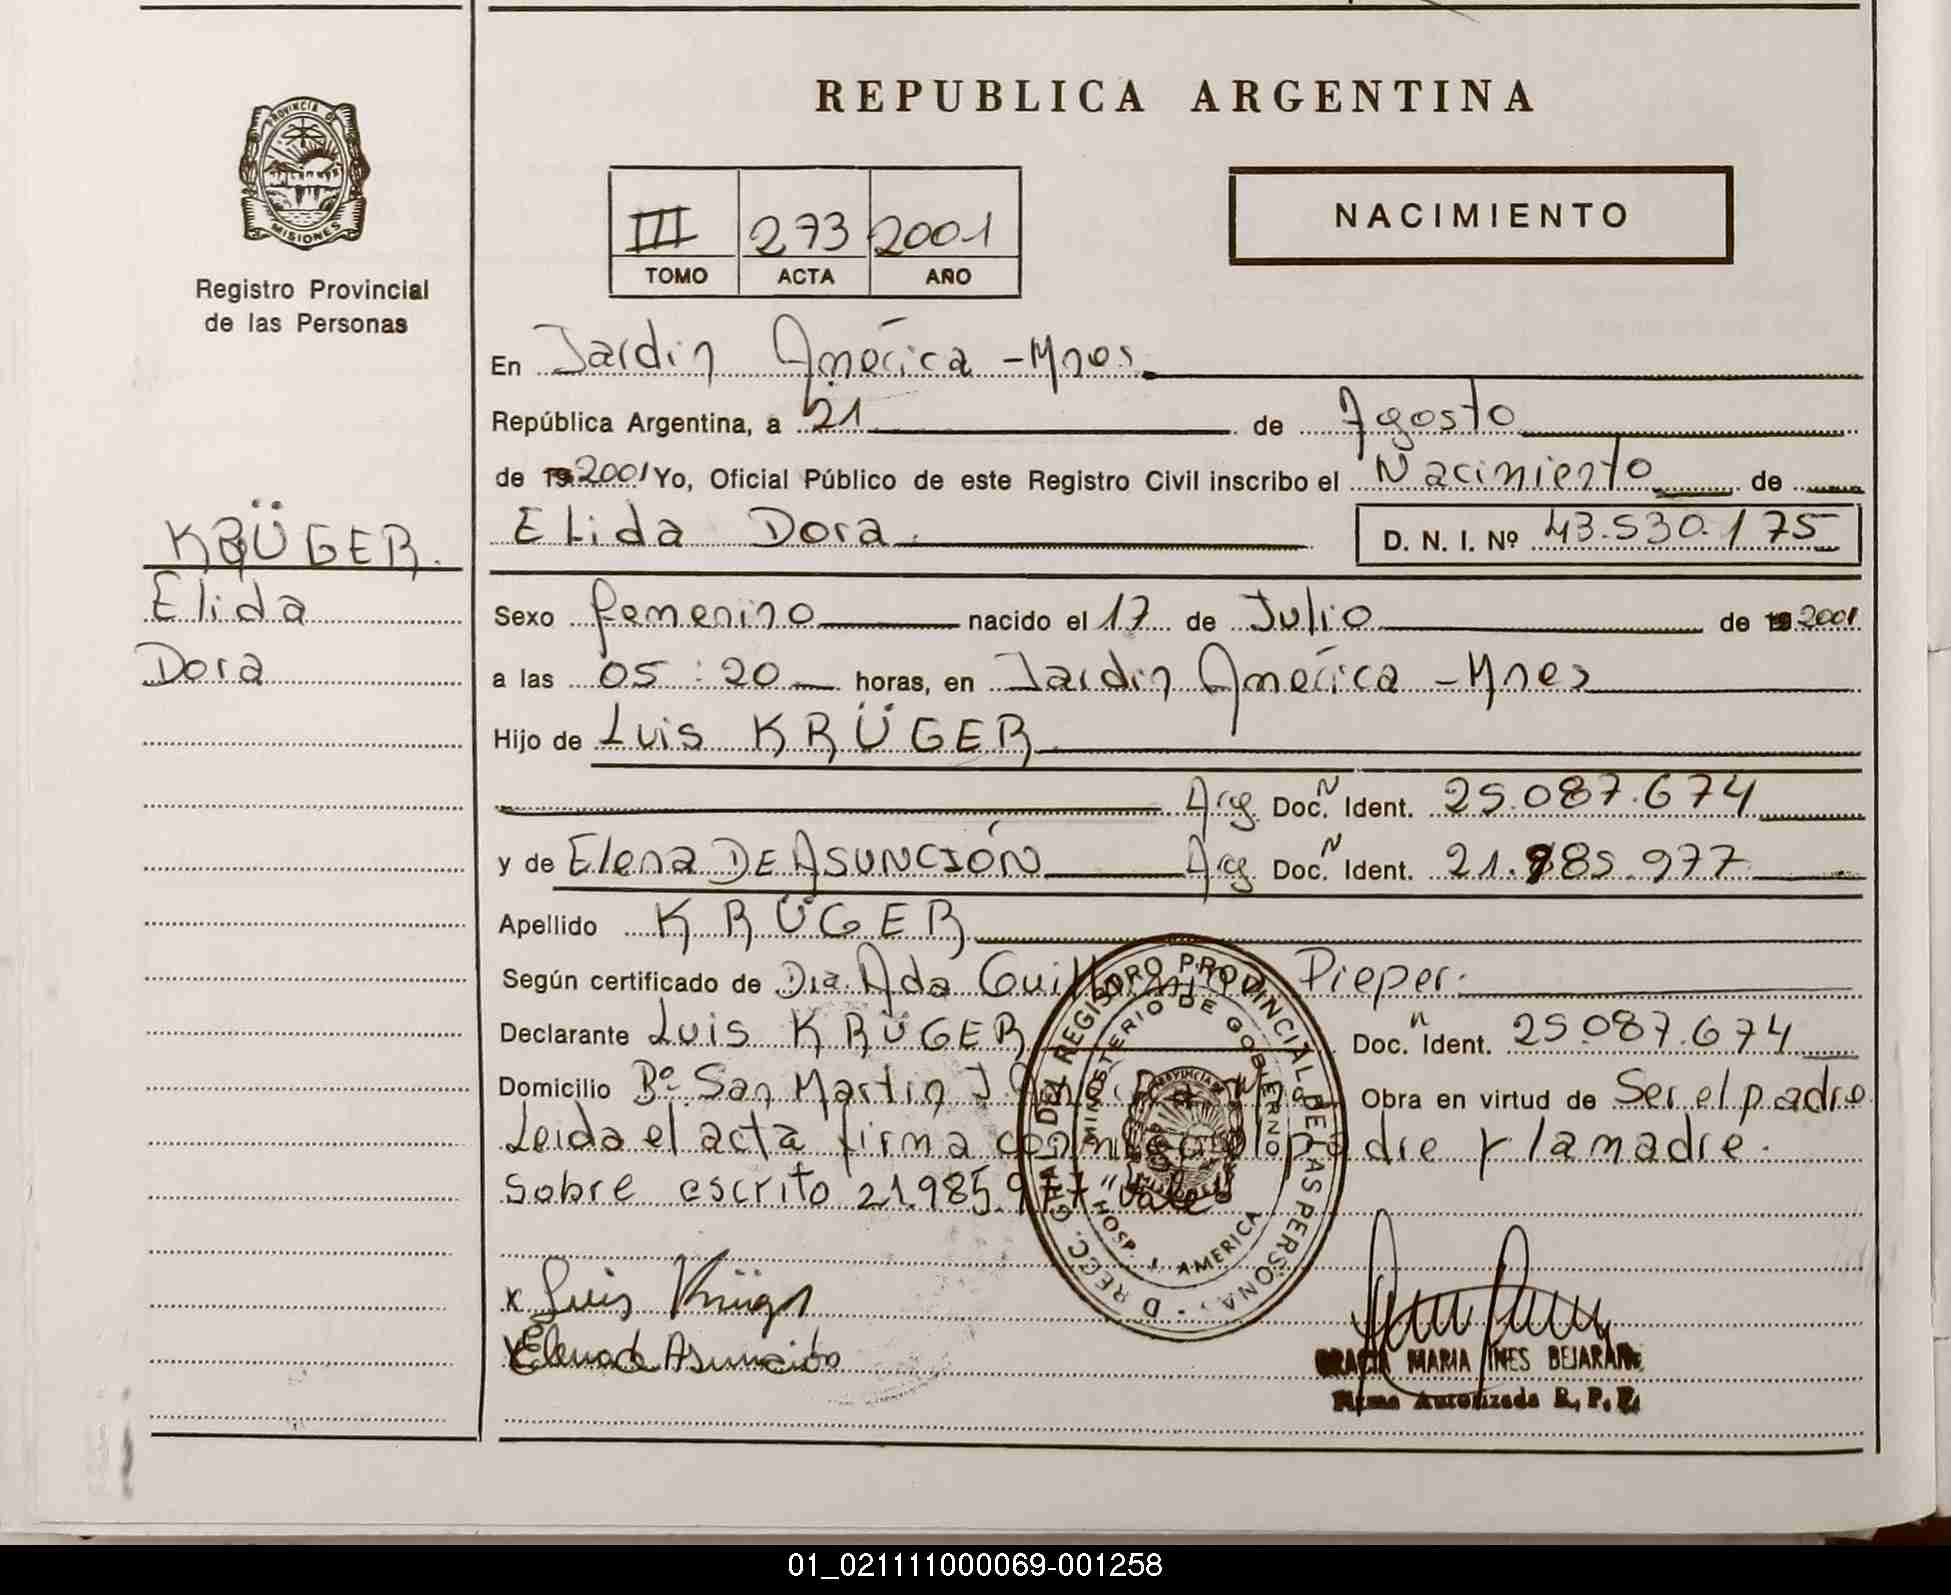 REPUBLICA ARGENTINA
PROVINCIA D
MISIONES
Registro Provincial
de las Personas
III 273 2001
TOMO ACTA AÑO
NACIMIENTO
En Jardín América - Mnes.
República Argentina, a 21 de Agosto
de 19 2001 Yo, Oficial Público de este Registro Civil inscribo el Nacimiento de
Elida Dora. D. N. I. Nº 43.530.175
KRÜGER.
Elida
Dora
Sexo femenino nacido el 17 de Julio de 19 2001
a las 05:20 horas, en Jardín América - Mnes
Hijo de Luis KRÜGER
Arg. Doc. N Ident. 25.087.674
y de Elena DE ASUNCIÓN Arg Doc. N Ident. 21.985.977
Apellido KRÜGER
Según certificado de Dra. Ada Pieper.
Declarante Luis KRÜGER Doc. n Ident. 25.087.674
Domicilio Bº San Martin J. Obra en virtud de Ser el padre
Leida el acta firma conmigo el padre y la madre.
Sobre escrito 21.985.977 "Vale"
D REGC. GRAL DEL REGISTRO PROVINCIAL DE LAS PERSONAS
MINISTERIO DE GOBIERNO
HOSP. J. AMERICA
x Luis Krüger
x Elena de Asunción
GRACIA MARIA INES BEJARANO
Firma Autorizada R. P. P.
01_021111000069-001258